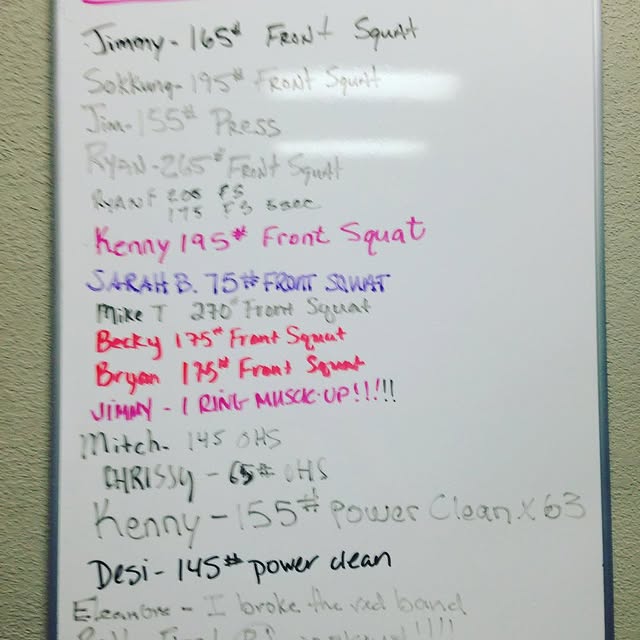 Jimmy - 165# Front Squat
Sokkung - 195# Front Squat
Jim - 155# Press
RYAN - 265# Front Squat
RYAN F 205 FS
175 FS 5 sec
Kenny 195# Front Squat
SARAH B. 75# FRONT SQUAT
Mike T 270# Front Squat
Becky 175# Front Squat
Bryan 175# Front Squat
JIMMY - 1 RING MUSCLE-UP!!!!!
Mitch - 145 OHS
CHRISSY - 65# OHS
Kenny - 155# power Clean x 63
Desi - 145# power clean
Eleanore - I broke the red band